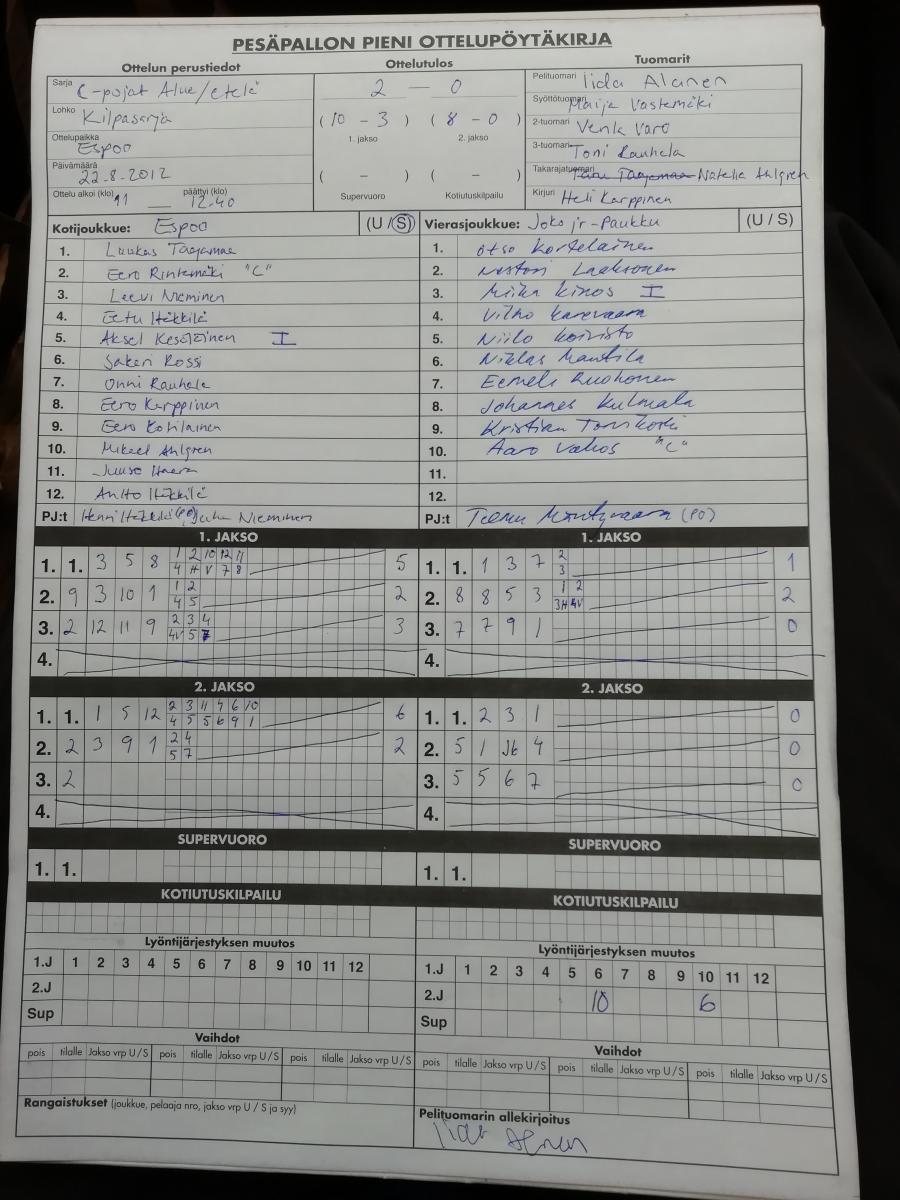 PESÄPALLON PIENI OTTELUPÖYTÄKIRJA
Ottelun perustiedot
Sarja C-pojat Alue/etelä
Lohko Kilpasarja
Ottelupaikka Espoo
Päivämäärä 22.8.2012
Ottelu alkoi (klo) 11 — päättyi (klo) 12.40
Ottelutulos
2 — 0
(10 - 3) (8 - 0)
1. jakso 2. jakso
( - ) ( - )
Supervuoro Kotiutuskilpailu
Tuomarit
Pelituomari Iida Alanen
Syöttötuomari Maija Vastemäki
2-tuomari Venla Varo
3-tuomari Toni Rauhela
Takarajatuomari Natalia Ahlgren
Kirjuri Heli Karppinen
Kotijoukkue: Espoo (U / S)
1. Luukas Taajamaa
2. Eero Rintamäki "C"
3. Leevi Nieminen
4. Eetu Häkkilä
5. Aksel I
6. Sakari Rossi
7. Onni Rauhala
8. Eero Karppinen
9. Eero Kotilainen
10. Mikael Ahlgren
11. Juuso
12. Antto Häkkilä
PJ:t Henri Häkkilä (PO), Juha Nieminen
Vierasjoukkue: Joko jr-Paukku (U / S)
1. Otso Kortelainen
2. Nestori Laaksonen
3. Miika Kinos I
4. Vilho Karevaara
5. Niilo Koivisto
6. Niklas Mantila
7. Eemeli Ruohonen
8. Johannes Kulmala
9. Kristian
10. Aaro "C"
11.
12.
PJ:t Teemu (PO)
1. JAKSO
1. 1. 3 5 8 1 2 10 12 11 5
4 H V 7 8
2. 9 3 10 1 1 2 2
4 5
3. 2 12 11 9 2 3 4 3
4V 5 7
4.
1. JAKSO
1. 1. 1 3 7 2 1
3
2. 8 8 5 3 1 2 2
3H 4V
3. 7 7 9 1 0
4.
2. JAKSO
1. 1. 1 5 12 2 3 11 4 6 10 6
4 5 5 6 9 1
2. 2 3 9 1 2 4 2
5 7
3. 2
4.
2. JAKSO
1. 1. 2 3 1 0
2. 5 1 4 0
3. 5 5 6 7 0
4.
SUPERVUORO
1. 1.
SUPERVUORO
1. 1.
KOTIUTUSKILPAILU
KOTIUTUSKILPAILU
Lyöntijärjestyksen muutos
1.J 1 2 3 4 5 6 7 8 9 10 11 12
2.J
Sup
Lyöntijärjestyksen muutos
1.J 1 2 3 4 5 6 7 8 9 10 11 12
2.J 10 6
Sup
Vaihdot
pois tilalle Jakso vrp U / S pois tilalle Jakso vrp U / S pois tilalle Jakso vrp U / S
Vaihdot
pois tilalle Jakso vrp U / S pois tilalle Jakso vrp U / S pois tilalle Jakso vrp U / S
Rangaistukset (joukkue, pelaaja nro, jakso vrp U / S ja syy)
Pelituomarin allekirjoitus